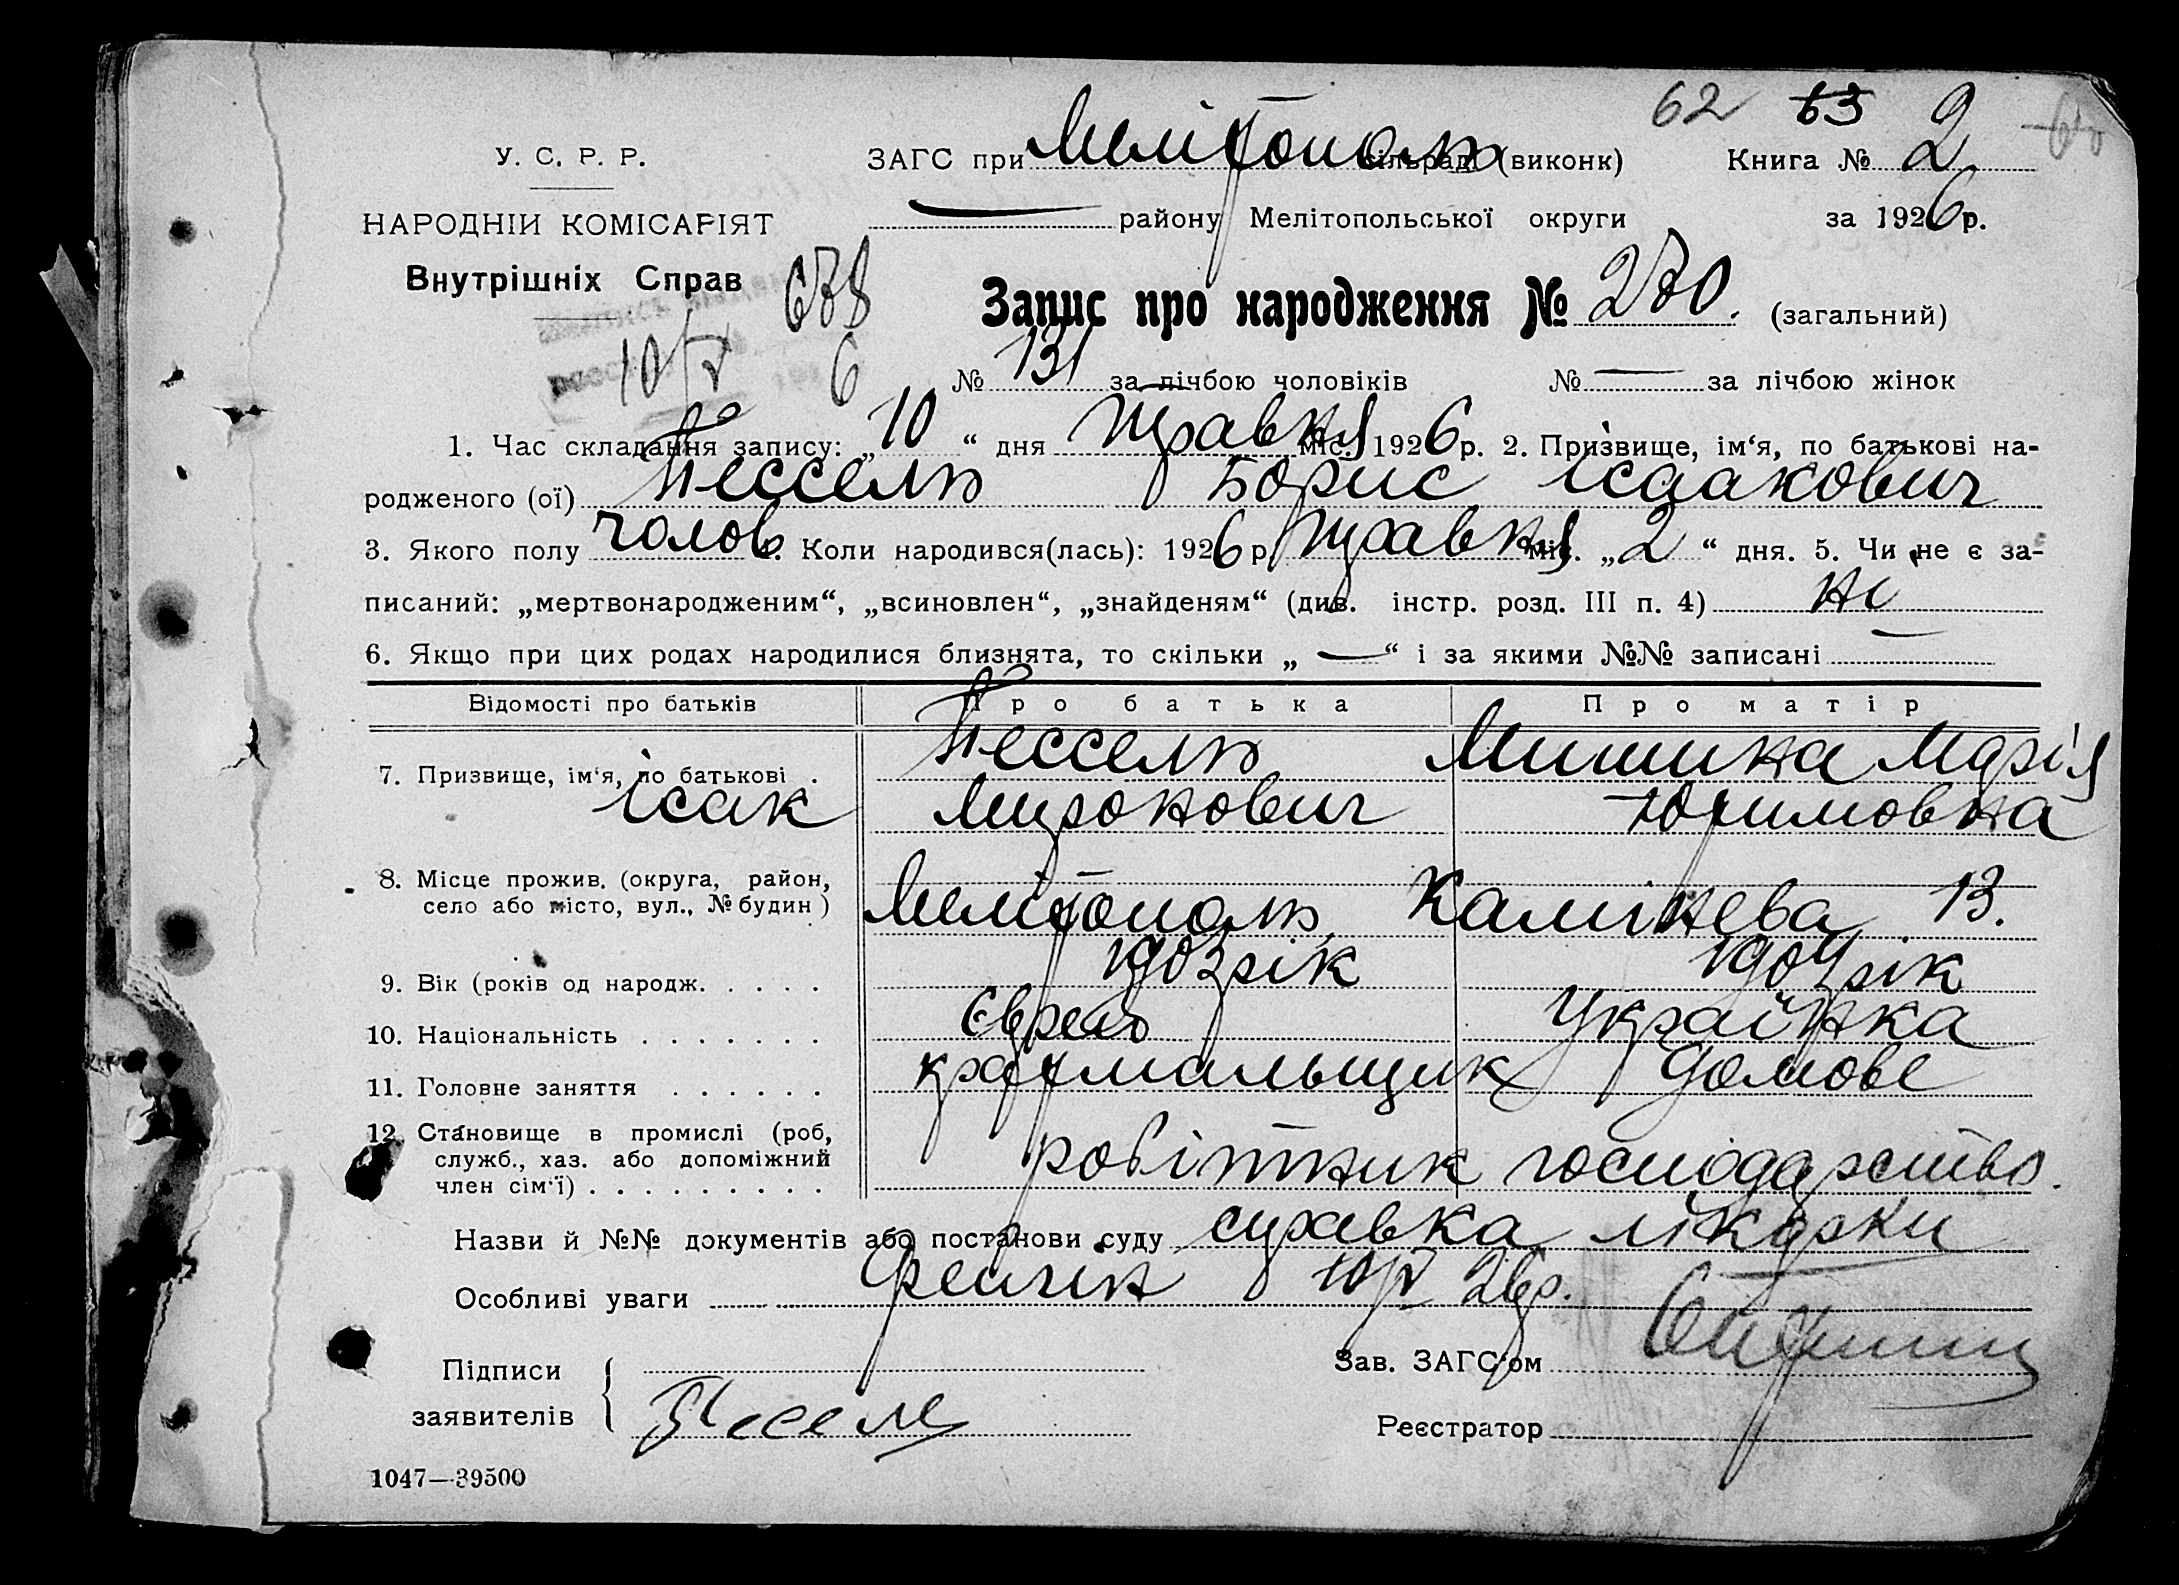 62 63 2
У. С. Р. Р. ЗАГС при Мелітополь сільраді (виконк) Книга № 2
НАРОДНІЙ КОМІСАРІЯТ — району Мелітопольської округи за 1926 р.
Внутрішніх Справ 678 Запис про народження № 270. (загальний)
10/V 6 № 131 за лічбою чоловіків № — за лічбою жінок
1. Час складання запису: „10“ дня травня міс. 1926 р. 2. Призвище, ім‘я, по батькові на-
родженого (ої) Тессель Борис Ісаакович
3. Якого полу чолов 4. Коли народився(лась): 1926 р. травня міс. „2“ дня. 5. Чи не є за-
писаний: „мертвонародженим“, „всиновлен“, „знайденям“ (див. інстр. розд. III п. 4) ні
6. Якщо при цих родах народилися близнята, то скільки „—“ і за якими №№ записані —
Відомості про батьків Про батька Про матір
7. Призвище, ім‘я, по батькові . Тессель Мишина Марія
Ісак Миронович Юхимовна
8. Місце прожив. (округа, район,
село або місто, вул., № будин) Мелітополь Камінева 13.
9. Вік (років од народж. . . . . 1903 рік 1904 рік
10. Національність . . . . . . . Єврей Українка
11. Головне заняття . . . . . . крахмальщик домове
12. Становище в промислі (роб,
служб., хаз. або допоміжний робітник господарство.
член сім‘ї) . . . . . . . . .
Назви й №№ документів або постанови суду справка лікарки
Особливі уваги 10/V 26р.
Підписи Зав. ЗАГС‘ом
заявителів Тессель Реєстратор
1047—39500